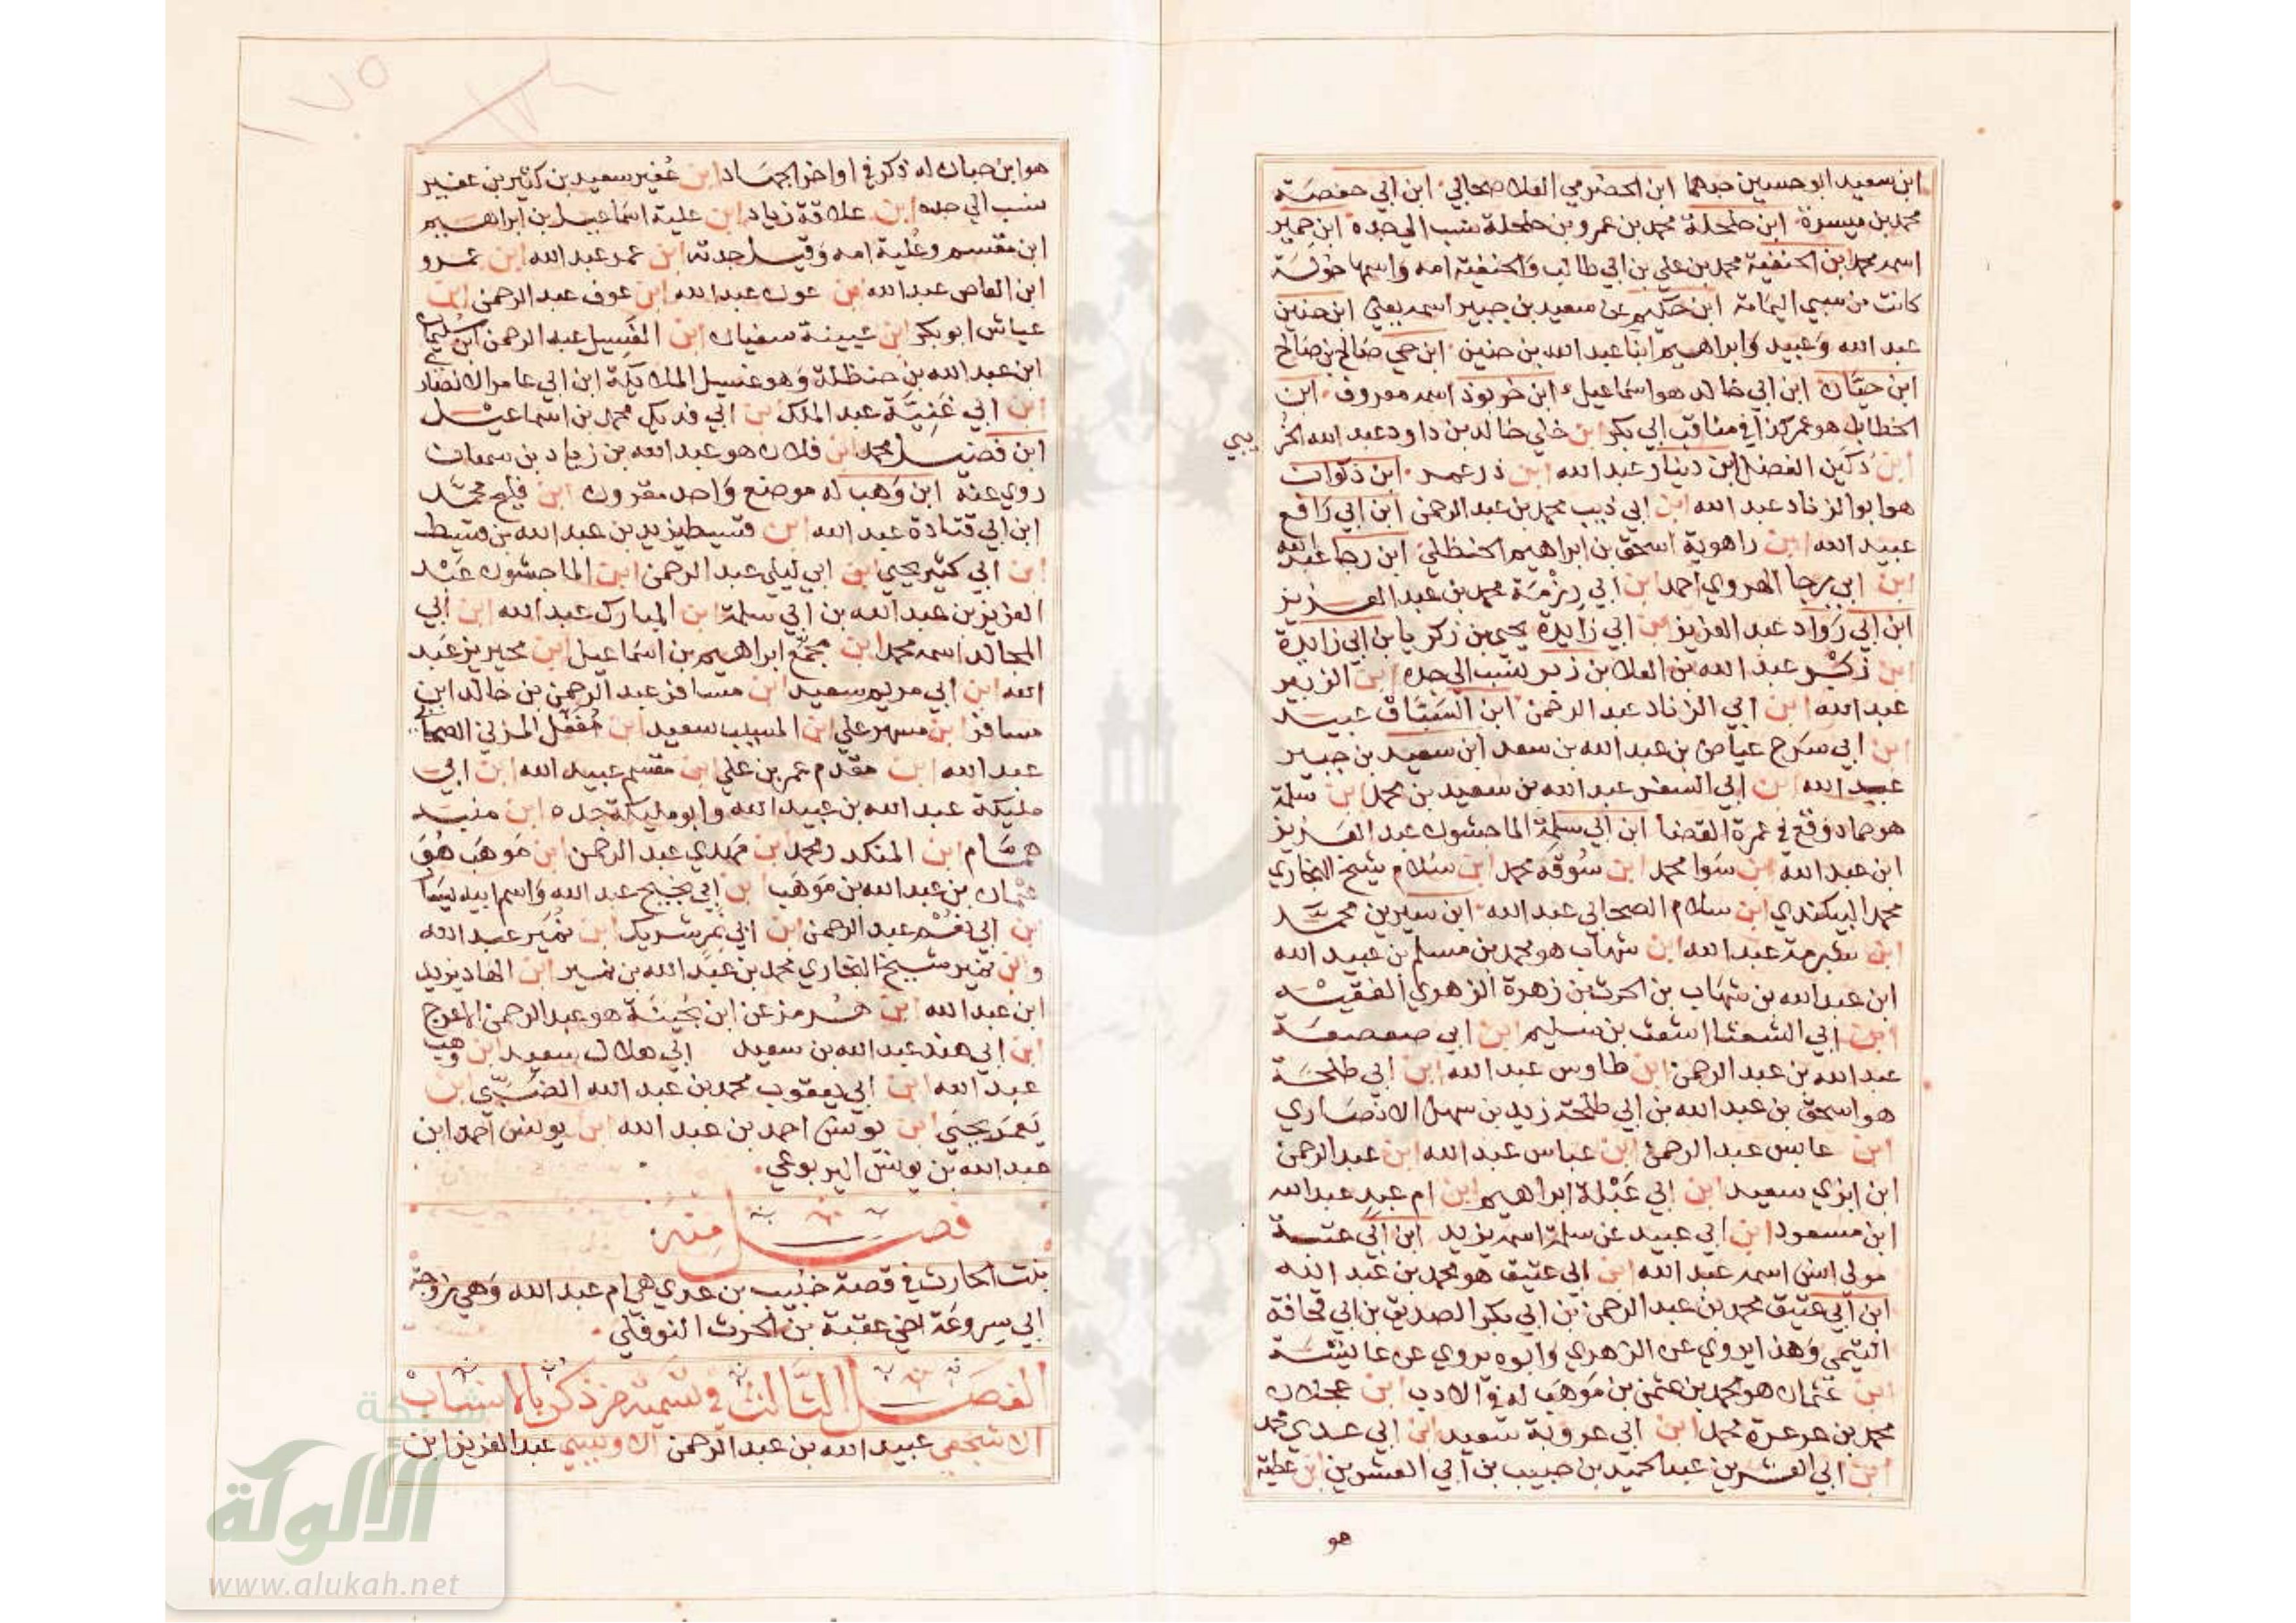 ابن سعيد ابو حسين جدهما ابن الحضرمي العلا صحابي ابن ابي حفصة
محمد بن ميسرة ابن حلحلة محمد بن عمرو بن حلحلة نسب الي جده ابن حمير
اسمه محمد ابن الحنفية محمد بن علي بن ابي طالب والحنفية امه واسمها خولة
كانت من سبي اليمامة ابن حكيم عن سعيد بن جبير اسمه يعلي ابن حنين
عبد الله وعبيد وابراهيم ابنا عبد الله بن حنين ابن حي صالح بن صالح
ابن حيان ابن ابي خالد هو اسماعيل ابن خربوذ اسمه معروف ابن
الخطاب هو عمر كذا في مناقب ابي بكر ابن خلي خالد بن داود عبد الله الخر
يبي
ابن دكين الفضل ابن دينار عبد الله ابن ذر عمر ابن ذكوان
هو ابو الزناد عبد الله ابن ابي ذيب محمد بن عبد الرحمن ابن ابي رافع
عبيد الله ابن راهوية اسحق بن ابراهيم الحنظلي ابن رجا عبد الله
ابن ابي رجا الهروي احمد ابن ابي رزمة محمد بن عبد العزيز
ابن ابي رواد عبد العزيز ابن ابي زايدة يحيى بن زكريا بن ابي زايدة
ابن زبر عبد الله بن العلا بن زبر نسب الي جده ابن الزبير
عبد الله ابن ابي الزناد عبد الرحمن ابن السباق عبيد
ابن ابي سرح عياض بن عبد الله بن سعد ابن سعيد بن جبير
عبد الله ابن ابي السفر عبد الله بن سعيد بن محمد ابن سلمة
هو حماد وقع في عمرة القضا ابن ابي سلمة الماجشون عبد العزيز
ابن عبد الله ابن سوا محمد ابن سوقة محمد ابن سلام شيخ البخاري
محمد البيكندي ابن سلام الصحابي عبد الله ابن سيرين محمد
ابن شبرمة عبد الله ابن شهاب هو محمد بن مسلم بن عبيد الله
ابن عبد الله بن شهاب بن الحرث بن زهرة الزهري الفقيه
ابن ابي الشعثا اشعث بن سليم ابن ابي صعصعة
عبد الله بن عبد الرحمن ابن طاوس عبد الله ابن ابي طلحة
هو اسحق بن عبد الله بن ابي طلحة زيد بن سهل الانصاري
ابن عابس عبد الرحمن ابن عباس عبد الله ابن عبد الرحمن
ابن ابزي سعيد ابن ابي عبلة ابراهيم ابن ام عبد عبد الله
ابن مسعود ابن ابي عبيد عن سلمة اسمه يزيد ابن ابي عتبة
مولي انس اسمه عبد الله ابن ابي عتيق هو محمد بن عبد الله
ابن ابي عتيق محمد بن عبد الرحمن بن ابي بكر الصديق بن ابي قحافة
التيمي وهذا يروي عن الزهري وابوه يروي عن عايشة
ابن عثمان هو محمد بن عثمن بن موهب له في الادب ابن عجلان
محمد بن عرعرة محمد ابن ابي عروبة سعيد ابن ابي عدي محمد
ابن ابي العشرين عبد الحميد بن حبيب بن ابي العشرين ابن عطية
هو
هو ابن حبان له ذكر في اواخر الجهاد ابن عفير سعيد بن كثير بن عفير
نسب الي جده ابن علاقة زياد ابن علية اسماعيل بن ابراهيم
ابن مقسم وعلية امه وقيل جدته ابن عمر عبد الله ابن عمرو
ابن العاص عبد الله ابن عون عبد الله ابن عوف عبد الرحمن ابن
عياش ابو بكر ابن عيينة سفيان ابن الغسيل عبد الرحمن ابن سليمان
ابن عبد الله بن حنظلة وهو غسيل الملايكة ابن ابي عامر الانصار
ي
ابن ابي غنية عبد الملك ابن ابي فديك محمد بن اسماعيل
ابن فضيل محمد ابن فلان هو عبد الله بن زياد بن سمعان
روي عنه ابن وهب له موضع واحد مقرون ابن فليح محمد
ابن ابي قتادة عبد الله ابن قسيط يزيد بن عبد الله بن قسيط
ابن ابي كثير يحيي ابن ابي ليلي عبد الرحمن ابن الماجشون عبد
العزيز بن عبد الله بن ابي سلمة ابن المبارك عبد الله ابن ابي
المجالد اسمه محمد ابن مجمع ابراهيم بن اسماعيل ابن محيريز عبد
الله ابن ابي مريم سعيد ابن مسافر عبد الرحمن بن خالد ابن
مسافر ابن مسهر علي ابن المسيب سعيد ابن مغفل المزني الصحابي
عبد الله ابن مقدم عمر بن علي ابن مقسم عبيد الله ابن ابي
مليكة عبد الله بن عبيد الله وابو مليكة جده ابن منبه
همام ابن المنكدر محمد ابن مهدي عبد الرحمن ابن موهب هو
عثمان بن عبد الله بن موهب ابن ابي نجيح عبد الله واسم ابيه يسار
ابن ابي نعم عبد الرحمن ابن ابي نمر شريك ابن نمير عبد الله
وابن نمير شيخ البخاري محمد بن عبد الله بن نمير ابن الهاد يزيد
ابن عبد الله ابن هرمز عن ابن بحينة هو عبد الرحمن الاعرج
ابن ابي هند عبد الله بن سعيد ابي هلال سعيد ابن وهب
عبد الله ابن ابي يعقوب محمد بن عبد الله الضبي ابن
يعمر يحيي ابن يونس احمد بن عبد الله ابن يونس احمد ابن
عبد الله بن يونس اليربوعي
فصل منه
بنت الحارث في قصة خبيب بن عدي هي ام عبد الله وهي زوجة
ابي سروعة اخي عقبة بن الحرث النوفلي
الفصل الثالث في تسمية من ذكر بالانساب
الاشجعي عبيد الله بن عبد الرحمن الاويسي عبد العزيز ابن
شبكة
الألوكة
www.alukah.net